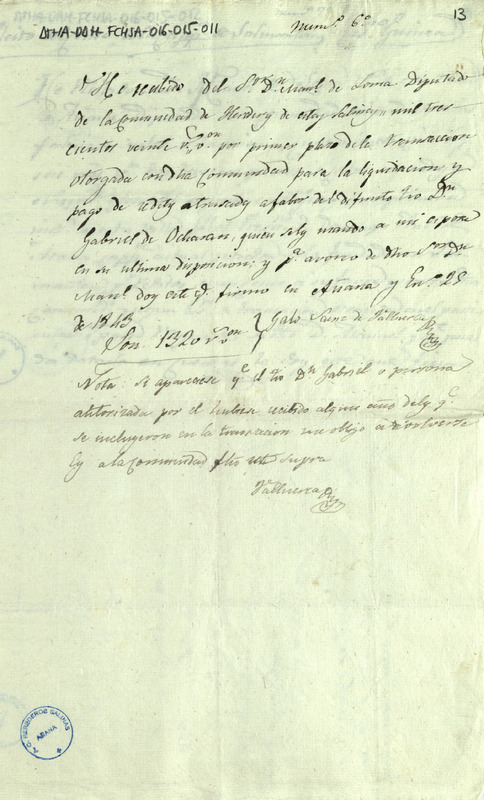 ATHA-DAH-FCHSA-016-015-011
Num.º 6º
13
He recibido del S.or D.n Man.l de Soma Diputado
de la Comunidad de Hered.s de estas Salinas, mil tres
cientos veinte r.s v.on por primer plazo de la transaccion
otorgada con dha Comunidad para la liquidacion y
pago de reditos atrasados a fabor del difunto tio D.n
Gabriel de Ochavan, quien los mando a mi esposa
en su ultima disposicion: y p.a avono de dho S.or D.n
Man.l doy este q.e firmo en Añana y En.o 25
de 1843
Son 1320 r.s v.on } Galo Sainz de Valluerca
Nota. Si aparecese q.e el tio D.n Gabriel o persona
autorizada por el hubiese recibido algun año de los q.e
se incluyeron en la transacion me obligo a devolverse
los a la Comunidad fho ut supra
Valluerca
C. HEREDEROS SALINAS
AÑANA